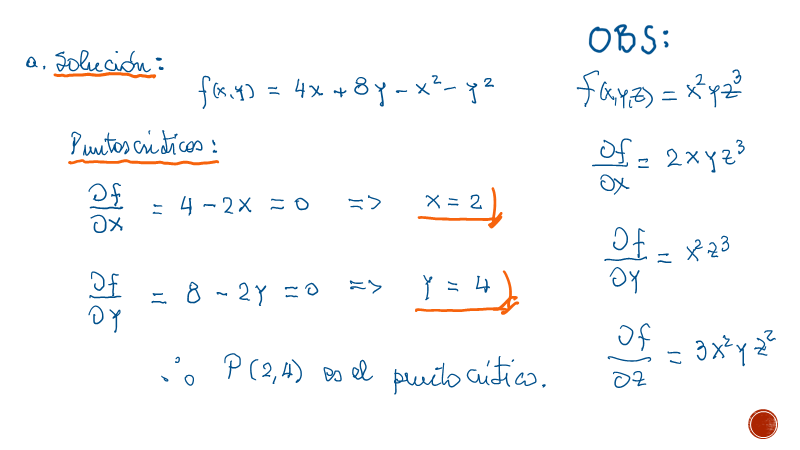 a. Solución:
f(x,y) = 4x + 8y - x² - y²
Puntos críticos:
∂f/∂x = 4 - 2x = 0 => x = 2
∂f/∂y = 8 - 2y = 0 => y = 4
∴ P(2,4) es el punto crítico.
OBS:
f(x,y,z) = x²yz³
∂f/∂x = 2xyz³
∂f/∂y = x²z³
∂f/∂z = 3x²yz²